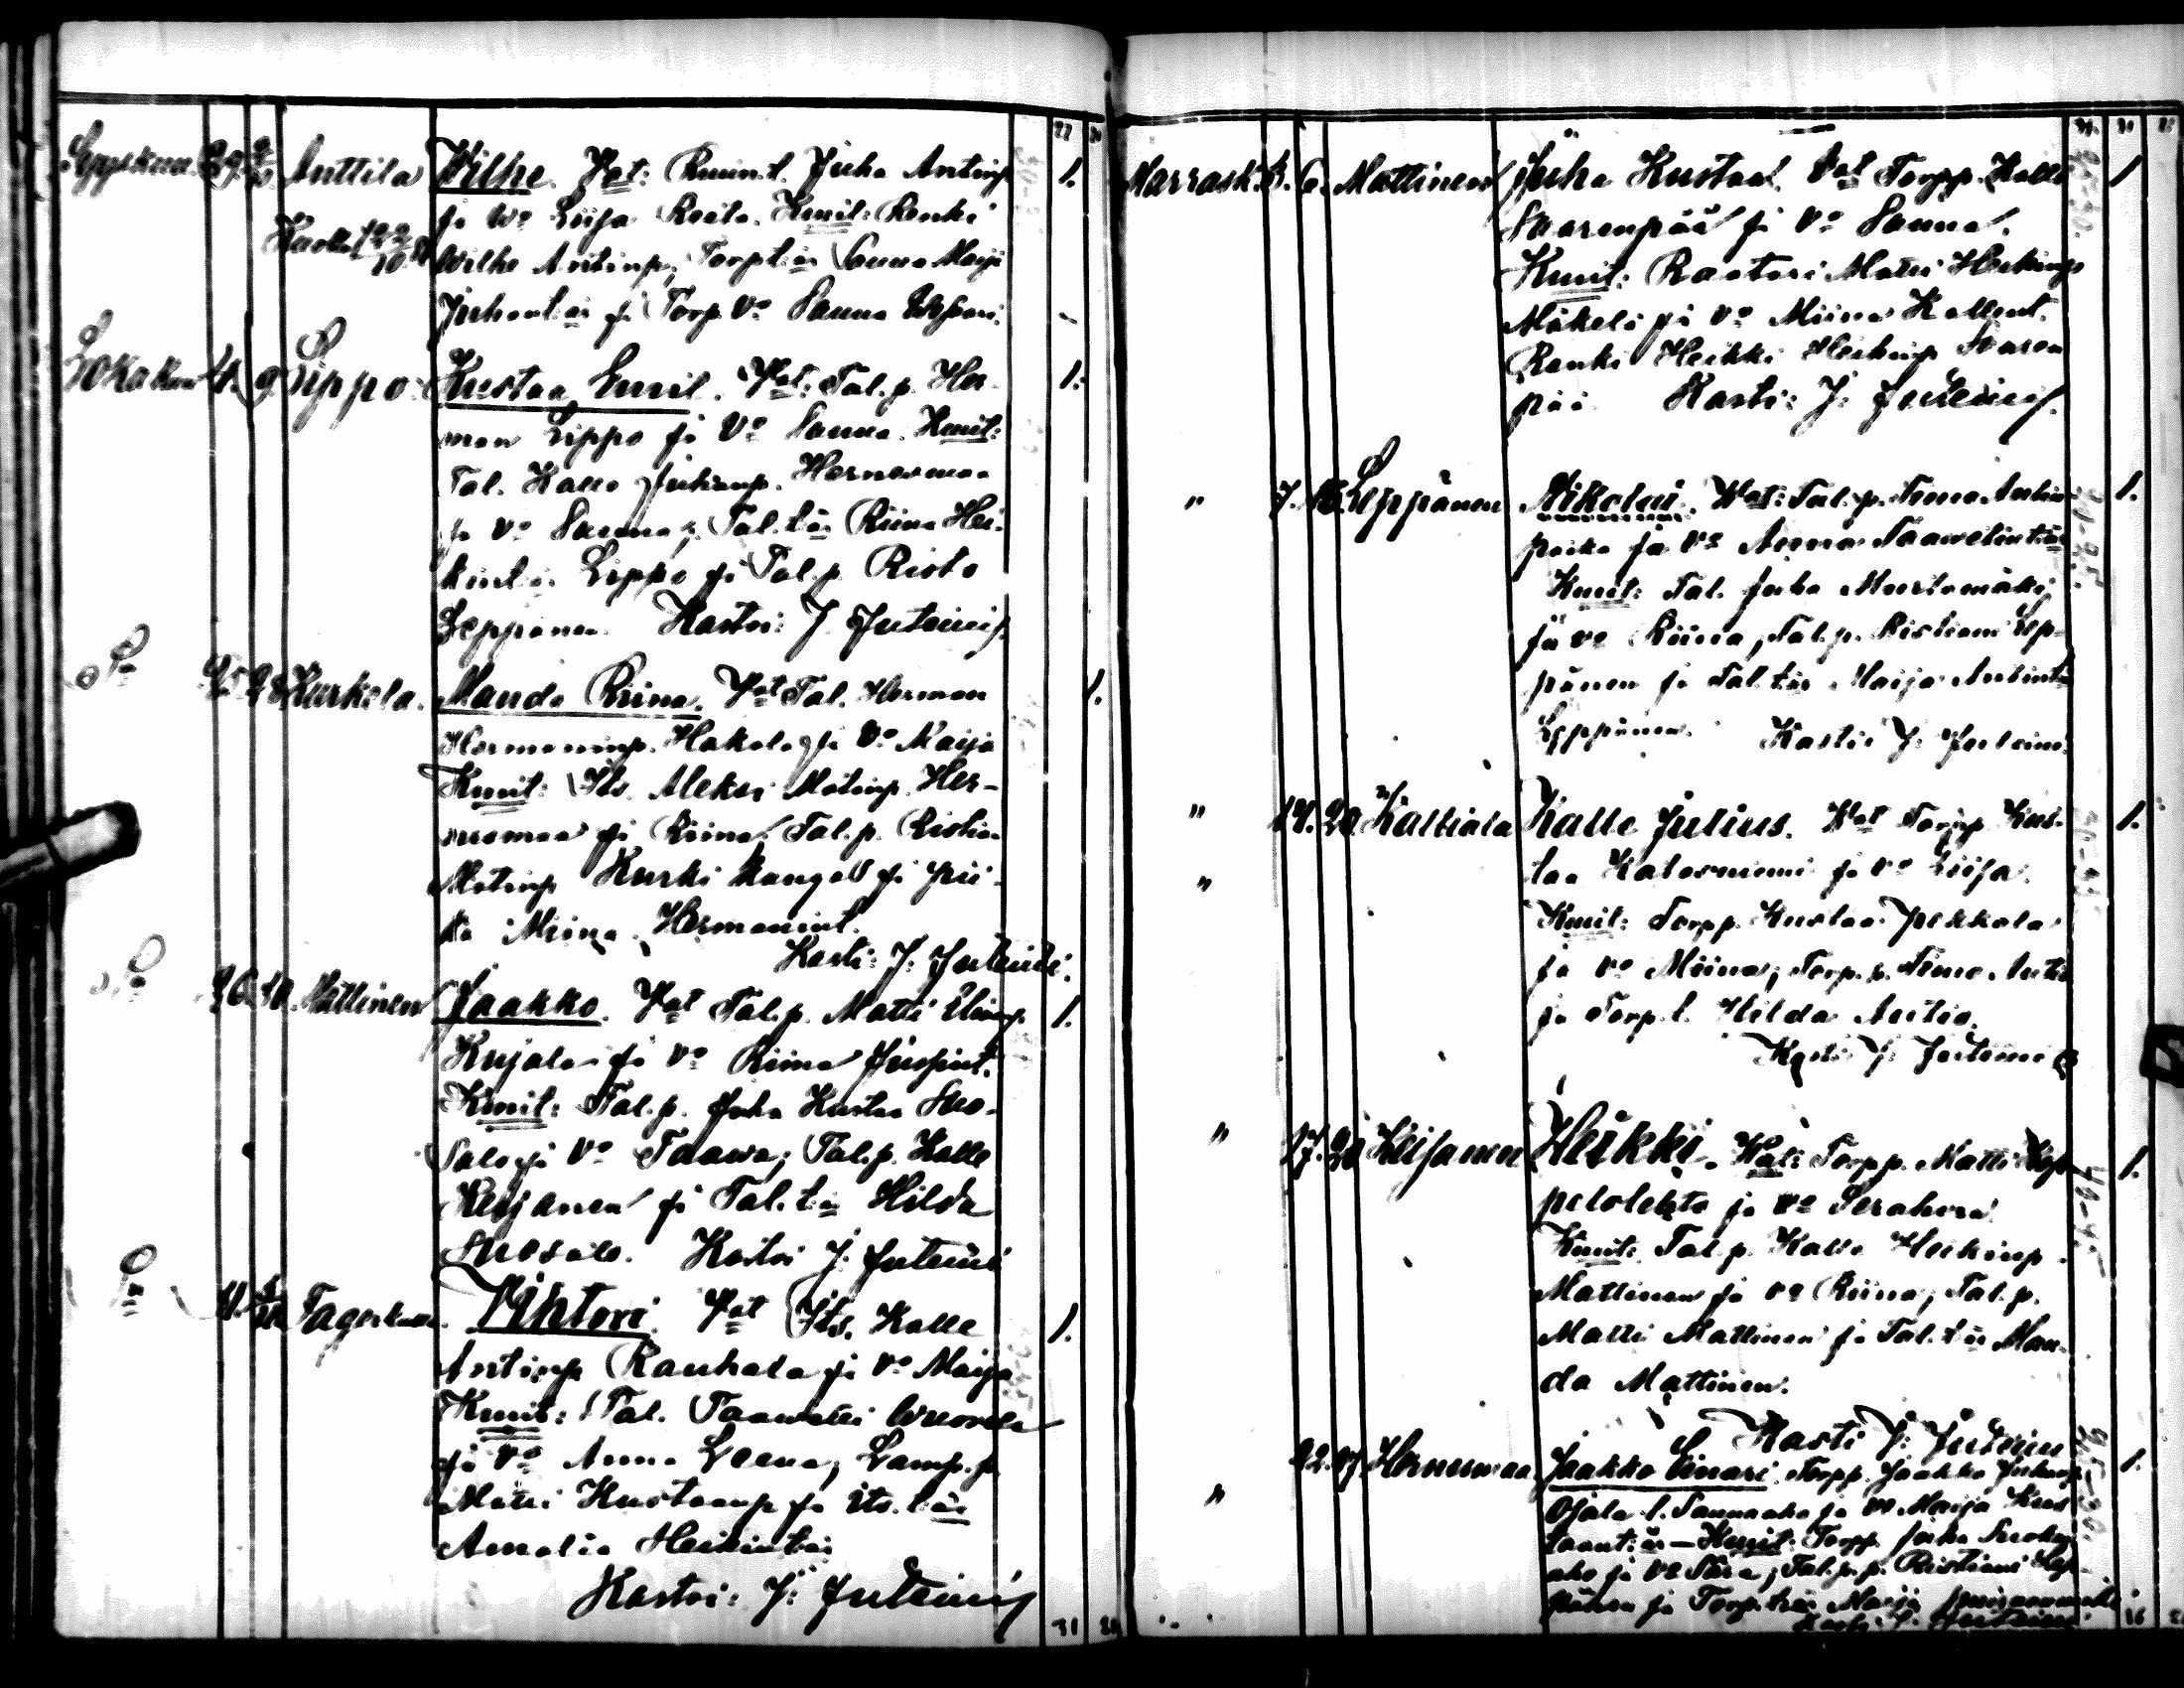 22
Syyskuu 29. Anttila Wilhe. Vat: Ruun.t. Juha Antinp. 1.
ja Vo Liisa Kmit: Renki
Kuollut 22/10 Wilhe Antinp, Torp.t:är Sanna Maija
Juhont:är ja Torp. Vo Sanna
Lokakuu 4. 9. Lippo Kustaa Emil. Vat: Tal.p. Her- 1.
man Lippo ja Vo Sanna. Kmit:
Tal. Kalle Juhanp. Hernesmaa
ja Vo Sanna; Tal.t:är Riina Hei-
kint:är Lippo ja Tal.p. Risto
Leppänen. Kastoi: J. Juteini
25. 28. Kurkela. Manda Riina. Vat Tal. Herman 1.
Hermaninp. Hakala ja Vo Maija
Kmit: Its. Aleksi Matinp. Her-
nesmaa ja Riina; Tal.p. Ristian
Matinp Kurki kangas ja pii-
ka Miina Hermanint.
Kasti: J. Juteini.
26. 30. Mattinen Jaakko. Vat Tal.p. Matti Eliinp. 1.
Kujala ja Vo Riina
Kmit: Tal.p. Juha Kustaa Suo-
Salo ja Vo Taava; Tal.p. Kalle
Keijanen ja Tal.t:är Hilda
Suosalo. Kastoi J. Juteini
Fagerlund. Vihtori. Vat Its. Kalle 1.
Antinp Rauhala ja Vo Maija
Kmit: Tal. Taavetti Wuorela
ja Vo Anna Leena, Lamp.p.
Matti Kustaanp ja Its. t:är
Amalia Heikint:är
Kastoi: J: Juteini
31
Marrask. 6. Mattinen Juha Kustaa. Vat Torpp. Kalle 1
Saarenpää ja Vo Sanna.
Kmit: Raatari Matti Heikinp
Mäkelä ja Vo Miina Kallent.
Renki Heikki Heikinp Saaren
pää. Kasti: J: Juteini.
" 7. 15. Leppänen Nikolai. Vat: Tal.p. Simo Antin 1.
poika ja Vo Anna Taavetint:är
Kmit: Tal. Juha Mustamäki
ja Vo Riina, Tal.p. Ristiani Lep-
pänen ja Tal.t:är Maija Antint:är
Leppänen. Kasti: J: Juteini
" 14. 20. Kaltiala Kalle Julius. Vat Torpp Kus- 1.
taa Katasniemi ja Vo Liisa.
"
Kmit: Torpp. Kustaa Pekkala
ja Vo Miina; Torp. p. Simo Autio
ja Torp. t. Hilda Autio.
Kasti J: Juteini
" 17. 20. Keijanen Heikki. Vat: Torpp. Matti Lep- 1.
pelolehto ja Vo Serahvia
Kmit: Tal.p. Kalle Heikinp.
Mattinen ja Vo Riina; Tal.p.
Matti Mattinen ja Tal.t:är Man-
da Mattinen.
Kasti J: Juteini
" 22. 27. Hernesmaa Jaakko Einari. Torpp. Jaakko Juhanp. 1.
Ojala l. Saunaaho ja Vo Maija Kus-
taant:är — Kmit: Torpp. Juha
aho ja Vo Sara; Tal.p.p. Ristiani Lep-
pänen ja Torp.t:är Maija
Kasti J. Juteini